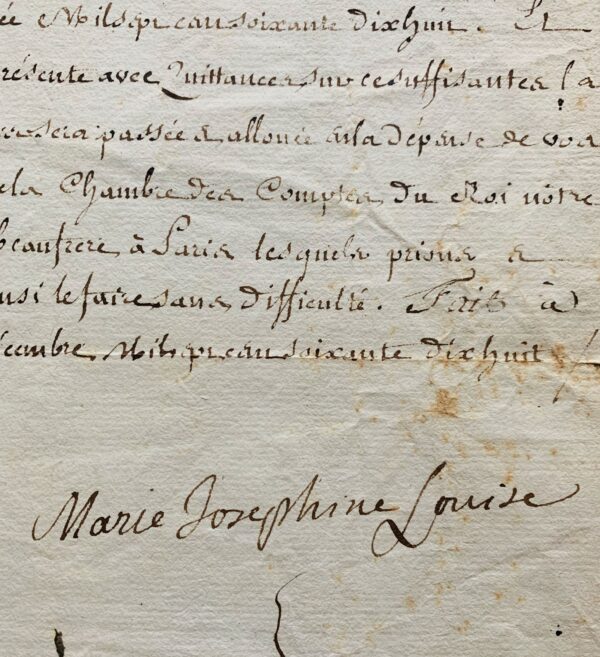 ée Milsept cens soixante dixhuit. Et
résente avec Quittances sur ce suffisantes la
sera passée & allouée en la dépense de vos
la Chambre des Comptes du Roi nôtre
beaufrere à Paris lesquels prions
nsi le faire sans difficulté. Fait à
écembre Milsept cens soixante dixhuit
Marie Josephine Louise